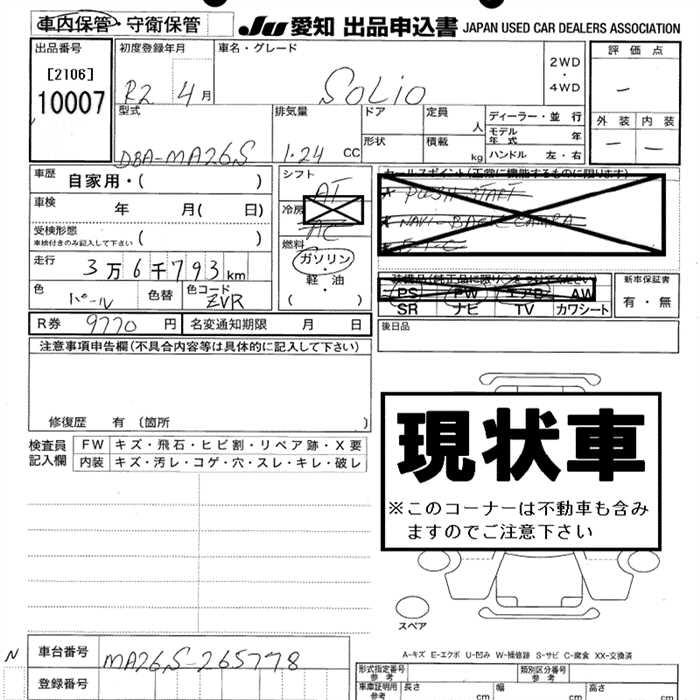 車内保管・守衛保管
JU 愛知 出品申込書 JAPAN USED CAR DEALERS ASSOCIATION
出品番号
[2106]
10007
初度登録年月
R2 4月
車名・グレード
SOLIO
2WD
・
4WD
評価点
－
外装 内装
－ －
型式
DBA-MA26S
排気量
1.24 CC
ドア
定員
人
形状
積載
kg
ディーラー・並行
モデル年式 年
ハンドル 左・右
車歴 自家用・( )
車検 年 月( 日)
受検形態
車検付きのみ記入して下さい ( )
走行 3万6千793km
色 パール 色替 色コード ZVR
シフト
AT
冷房
AC
燃料
ガソリン
・
軽・油
( )
セールスポイント(正常に機能するものに限ります)
PUSH START
NAVI・BACK CAMERA
ETC
装備品(純正品に限り○をつけてください)
PS PW エアB AW
SR ナビ TV カワシート
新車保証書
有・無
R券 9770 円 名変通知期限 月 日
後日品
注意事項申告欄(不具合内容等は具体的に記入して下さい)
修復歴 有 〔箇所 〕
検査員
記入欄
FW キズ・飛石・ヒビ割・リペア跡・X要
内装 キズ・汚レ・コゲ・穴・スレ・キレ・破レ
現状車
※このコーナーは不動車も含み
ますのでご注意下さい
スペア
A-キズ E-エクボ U-凹み W-補修跡 S-サビ C-腐食 XX-交換済
N
車台番号 MA26S-265778
登録番号
形式指定番号
参考
類別区分番号
参考
車庫証明用
参考
長さ cm 幅 cm 高さ cm